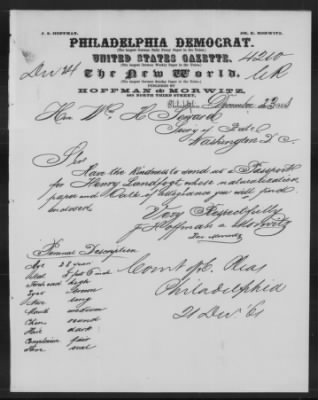 J. S. HOFFMAN.
DR. E. MORWITZ.
PHILADELPHIA DEMOCRAT.
(The largest German Daily Paper in the Union.)
UNITED STATES GAZETTE.
(The largest German Weekly Paper in the Union.)
The New World.
(The largest German Sunday Paper in the Union.)
PUBLISHED BY
HOFFMAN & MORWITZ,
NORTH THIRD STREET,
4210
Philad. December 23
Hon. Wm. H. Seward
Secy of State
Washington D. C.
Sir
Have the kindness to send us a Passport
for Henry whose naturalization
paper and Oath of allegiance you will find
enclosed
Very Respectfully
J S Hoffman & Morwitz
Personal Description
Age
5 feet 6 inch
Forehead high
Eyes
Nose long
Mouth medium
Chin round
Hair dark
Complexion fair
Face oval
Philadelphia